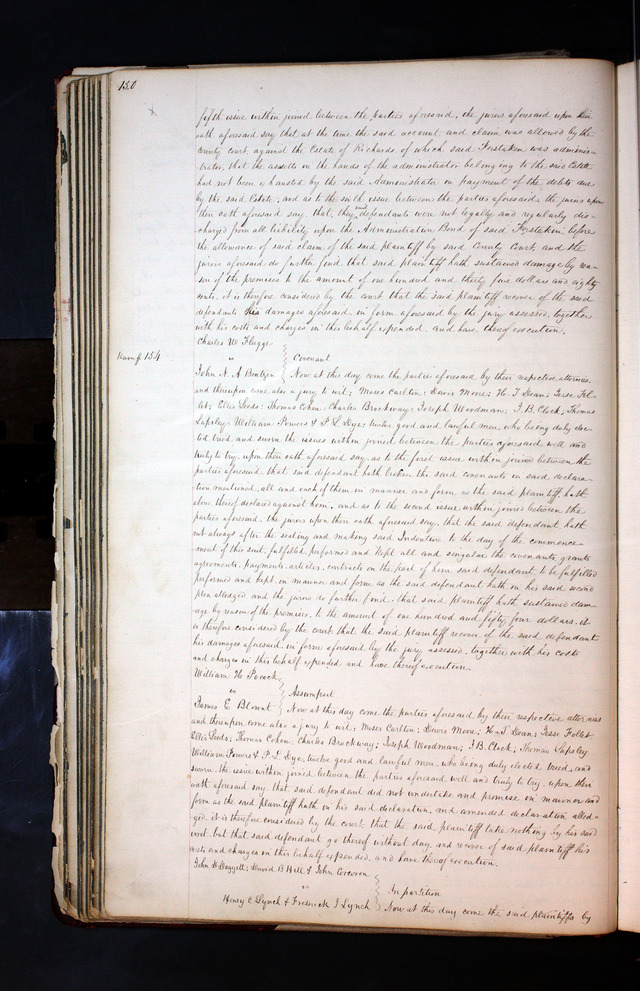 150
fifth issue within joined between the parties aforesaid, the jurors aforesaid upon their
oath aforesaid say that at the time the said account and claim was allowed by the
County court, against the Estate of Richards of which said Forstaken was adminis-
trator, that the assetts in the hands of the administrator belonging to the said Estate
had not been exhausted by the said Administrator in payment of the debts due
by the said Estate, and as to the sixth issue between the parties aforesaid, the jurors upon
their oath aforesaid say, that, they said defendants were not legally and regularly dis-
charged from all liability upon the Administration Bond of said Forstaken before
the allowance of said claim of the said plaintiff by said County Court, and the
jurors aforesaid do further find that said plaintiff hath sustained damage by rea-
son of the premises to the amount of one hundred and thirty four dollars and eighty
cents, it is therefore considered by the court that the said plaintiff recover of the said
defendants his damages aforesaid in form aforesaid by the jury assessed, together
with his costs and charges in this behalf expended, and have thereof execution.
Charles W Flugge
154
vs Covenant
John N. A Bentzen Now at this day come the parties aforesaid by their respective attornies,
and thereupon come also a jury to wit; Moses Carlton; Lewis More; H. T Dean; Jesse Fol-
let; Ellis Leeds; Thomas Cohen; Charles Brockway; Joseph Woodman; J. B. Clark; Thomas
Lapsley; William Powers & P. L Dye; twelve good and lawful men, who being duly elec-
ted tried and sworn the issues within joined between the parties aforesaid well and
truly to try, upon their oath aforesaid say, as to the first issue within joined between the
parties aforesaid, that said defendant hath broken the said covenants in said declara-
tion mentioned, all and each of them in manner and form as the said plaintiff hath
above thereof declared against him, and as to the second issue within joined between the
parties aforesaid, the jurors upon their oath aforesaid say, that the said defendant hath
not always after the sealing and making said Indenture to the day of the commence-
ment of this suit, fulfilled, performed and kept all and singular the covenants, grants
agreements, payments, articles, contracts on the part of him said defendant, to be fulfilled
performed and kept, in manner and form, as the said defendant hath in his said second
plea alledged and the jurors do further find, that said plaintiff hath sustained dam-
age by reason of the premises, to the amount of one hundred and fifty four dollars, it
is therefore considered by the court that the said plaintiff recover of the said defendant
his damages aforesaid, in form aforesaid by the jury assessed, together with his costs
and charges in this behalf expended and have thereof execution.
William H. Pocock
vs Assumpsit
James E Blount Now at this day come the parties aforesaid by their respective attornies
and thereupon come also a jury to wit; Moses Carlton; Lewis More; H. T Dean; Jesse Follet
Ellis Leeds; Thomas Cohen; Charles Brockway; Joseph Woodman; J. B. Clark; Thomas Lapsley
William Powers & P. L Dye, twelve good and lawful men, who being duly elected tried, and
sworn, the issue within joined between the parties aforesaid well and truly to try, upon their
oath aforesaid say, that said defendant did not undertake and promise in manner and
form as the said plaintiff hath in his said declaration and amended declaration alled-
ged, it is therefore considered by the court, that the said plaintiff take nothing by his said
writ, but that said defendant go thereof without day, and recover of said plaintiff his
costs and charges in this behalf expended, and have thereof execution.
John D Daggett; David B Hill & John Corcoron
vs In partition
Henry C Lynch & Frederick J Lynch Now at this day come the said plaintiffs by